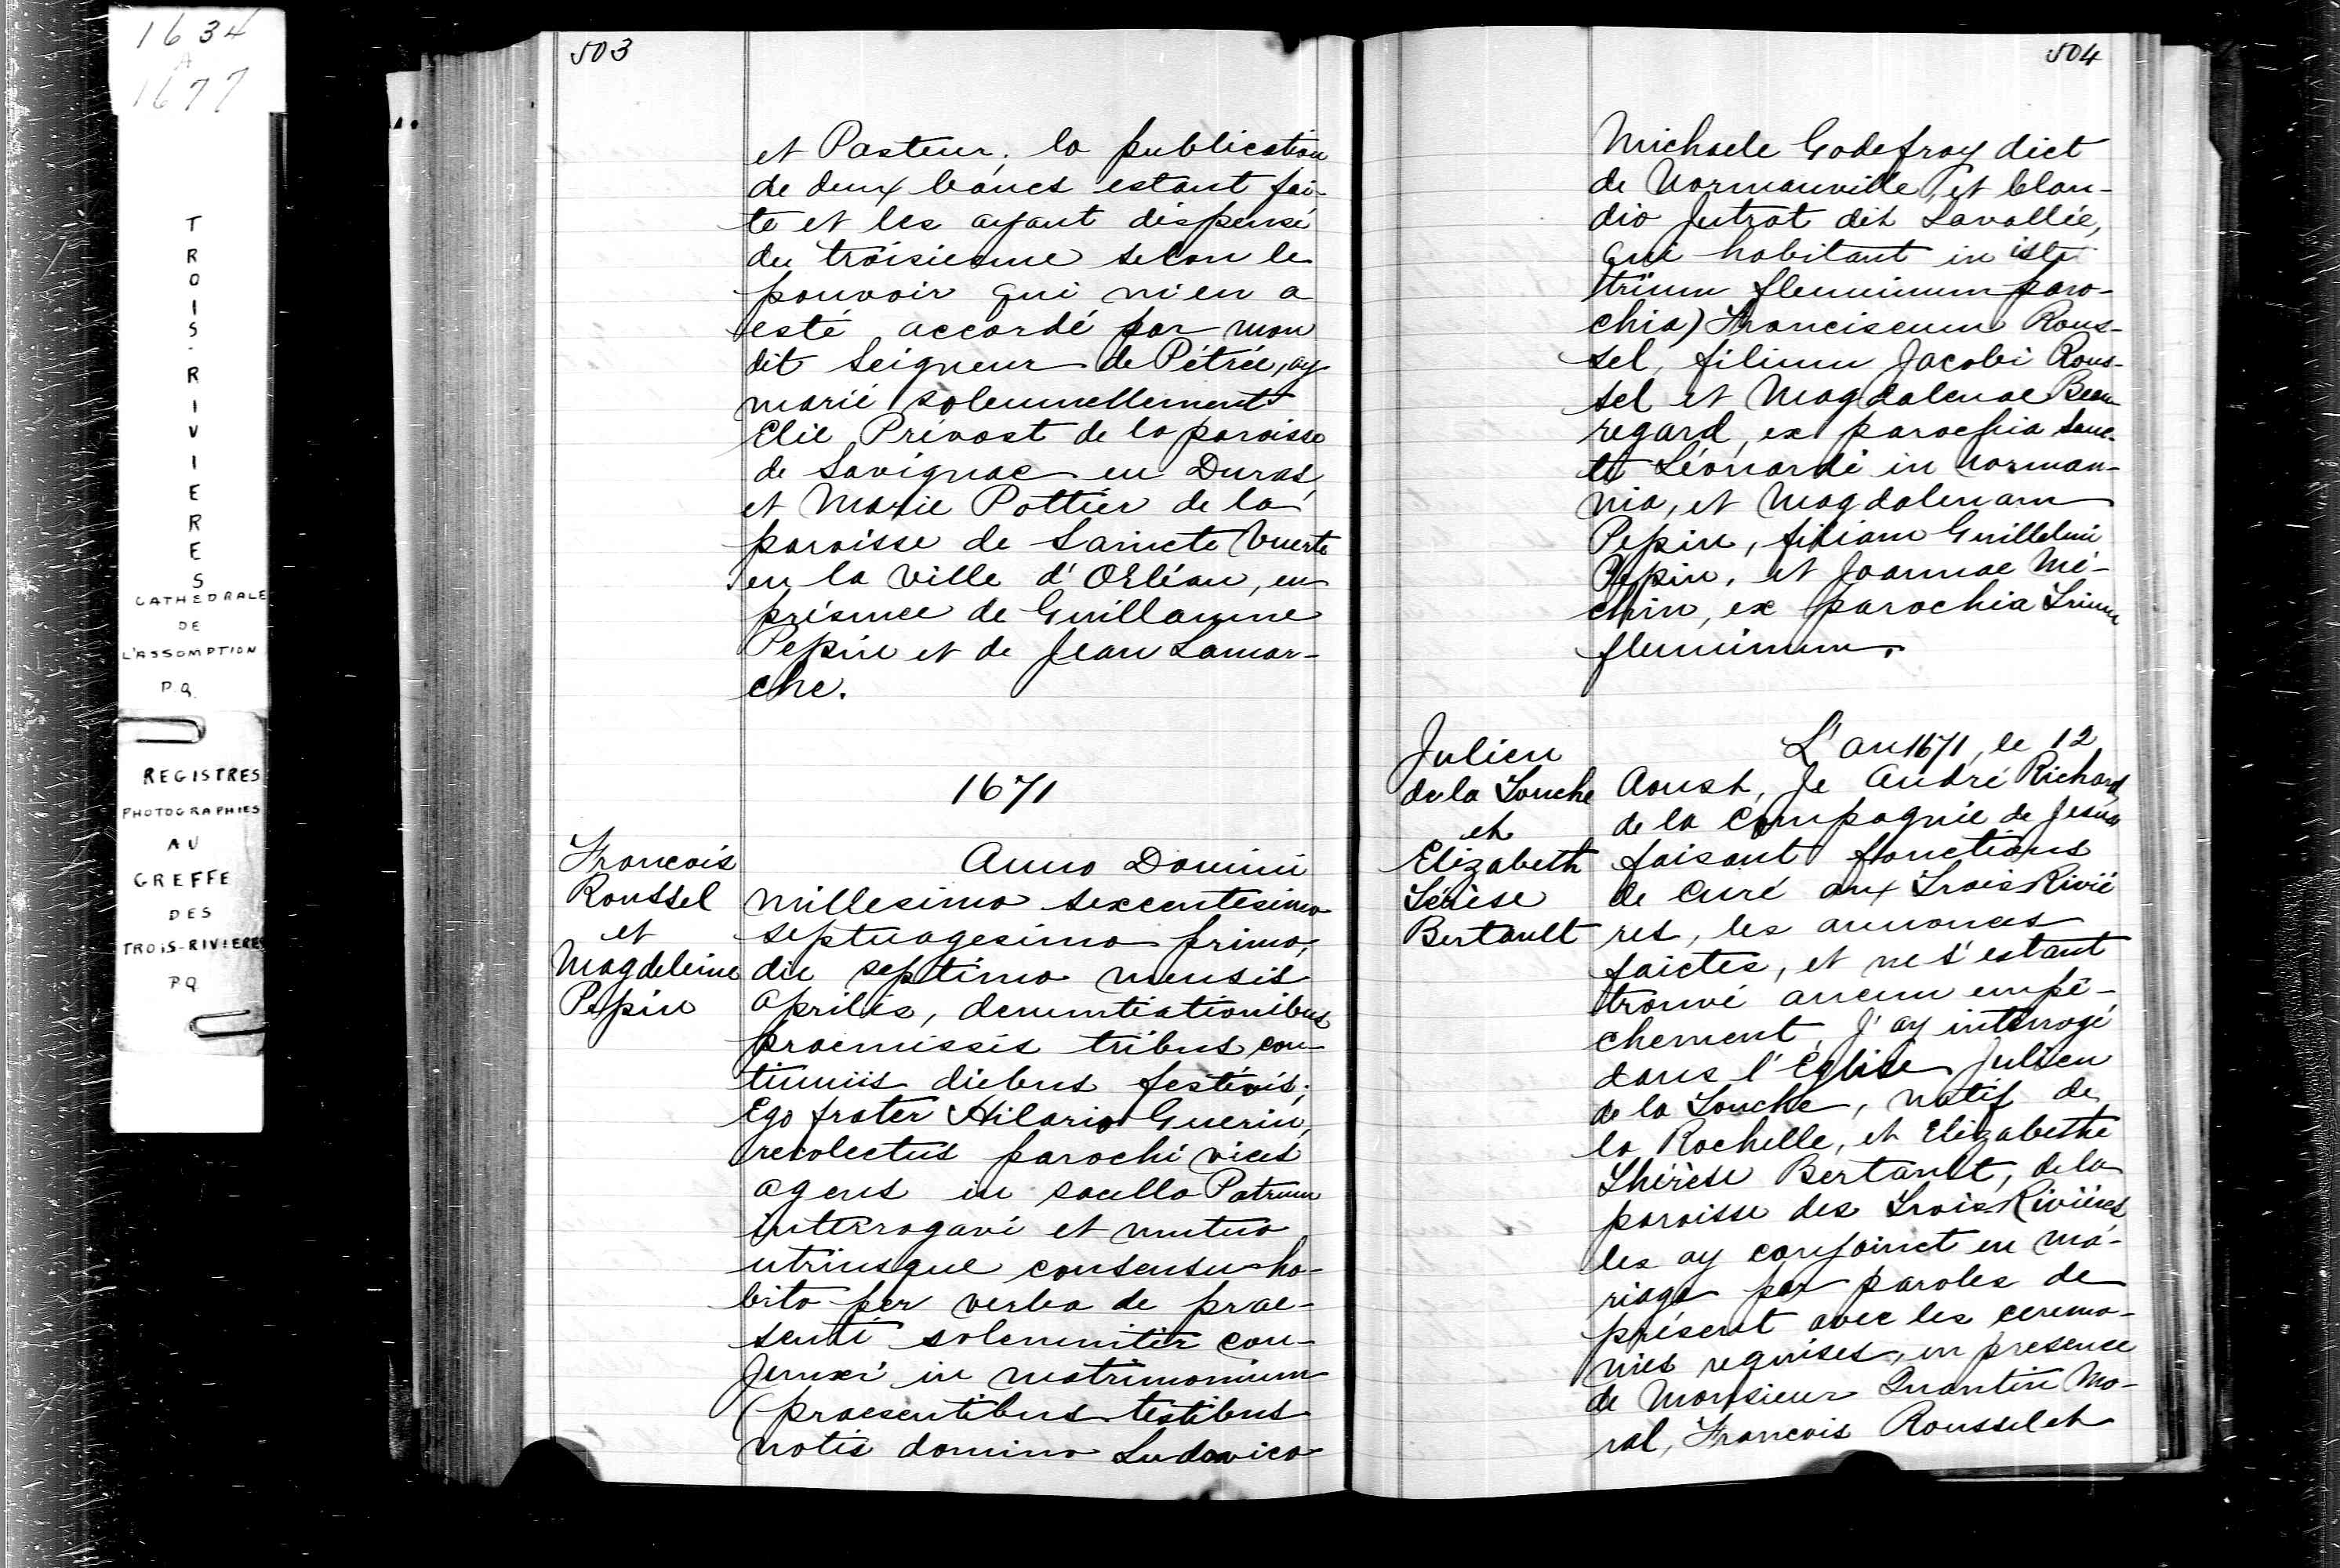 1634
A
1677
TROIS-RIVIERES
CATHEDRALE
DE
L'ASSOMPTION
P.Q.
REGISTRES
PHOTOGRAPHIES
AU
GREFFE
DES
TROIS-RIVIERES
PQ
503
et Pasteur; la publication
de deux bancs estant fai-
te et les ayant dispensé
du troisiesme selon le
pouvoir qui m'en a
esté accordé par mon
dit Seigneur de Pétrée, ay
marié solemnellement
Elie Prévost de la paroisse
de Savignac en Duras,
et Marie Pottier de la
paroisse de Saincte Vuerte
en la ville d'Orléan, en
présence de Guillaume
Pepin et de Jean Lamar-
che.
1671
Francois
Roussel
et
Magdeleine
Pepin
Anno Domini
millesimo sexcentesimo
septuagesimo primo,
die septimo mensis
aprilis, denuntiationibus
praemissis tribus con-
tinuis diebus festivis;
Ego frater Hilario Guerin,
recolectus parochi vices
agens in sacello Patrum
interrogavi et mutuo
utriusque consensu ha-
bito per verba de prae-
senti solemniter con-
junxi in matrimonium
(praesentibus testibus
notis domino Ludovico
504
Michaele Godefroy dict
de Normanville, et Clau-
dio Jutrat dit Lavallée,
qui habitant in ista
trium fluminum paro-
chia) Franciscum Rous-
sel, filium Jacobi Rous-
sel et Magdalenae Beau
regard, ex parochia Sanc-
ti Léonardi in Norman-
nia, et Magdalenam
Pepin, filiam Guillelmi
Pepin, et Joannae Mé-
chin, ex parochia Trium
fluminum.
Julien
de la Touche
et
Elizabeth
Térèse
Bertault
L'an 1671, le 12
Aoust, Je André Richard
de la Compagnie de Jesus
faisant fonctions
de Curé aux Trois Riviè
res, les annonces
faictes, et ne s'estant
trouvé aucun empê-
chement, J'ay interrogé
dans l'Eglise Julien
de la Touche, natif de
la Rochelle, et Elizabethe
Thérèse Bertault, de la
paroisse des Trois-Rivières,
les ay conjoinct en ma-
riage par paroles de
présent avec les ceremo-
nies requises, en presence
de Monsieur Quantin Mo-
ral, Francois Roussel et